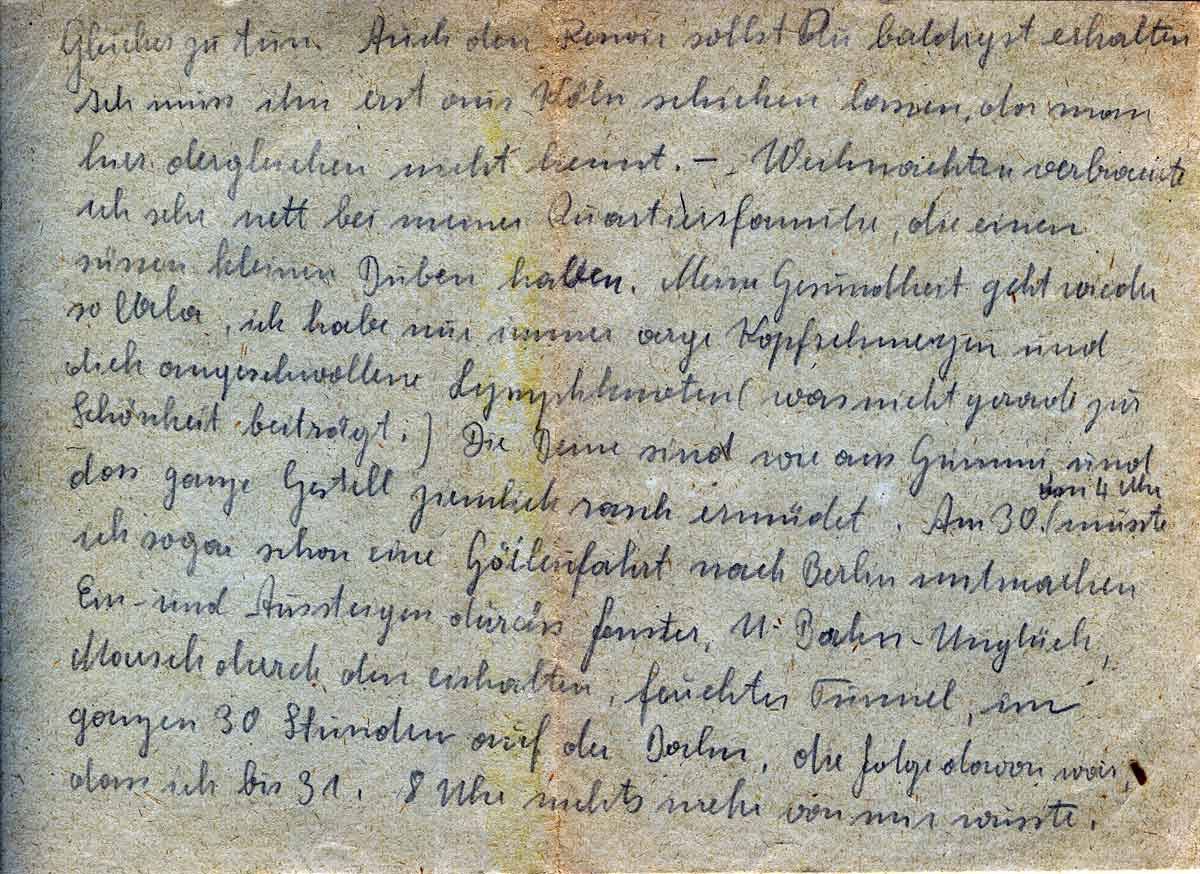 Gleiches zu tun. Auch den Renoir sollst Du baldigst erhalten
Ich muss ihn erst aus Köln schicken lassen, da man
hier dergleichen nicht kennt. – Weihnachten verbrachte
ich sehr nett bei meiner Quartiersfamilie, die einen
süssen kleinen Buben haben. Meine Gesundheit geht wieder
so lala, ich habe nur immer arge Kopfschmerzen und
dick angeschwollene Lymphknoten (was nicht gerade zur
Schönheit beiträgt.) Die Beine sind wie aus Gummi und
das ganze Gestell ziemlich rasch ermüdet. Am 30. um 4 Uhr musste
ich sogar schon eine Höllenfahrt nach Berlin mitmachen
Ein- und Aussteigen durchs Fenster, U-Bahn-Unglück,
Marsch durch den eiskalten, feuchten Tunnel, im
ganzen 30 Stunden auf der Bahn, die Folge davon war,
dass ich bis 31. 8 Uhr nichts mehr von mir wusste.